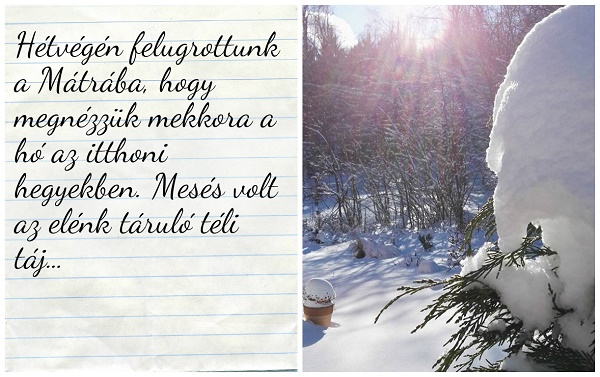 Hétvégén felugrottunk
a Mátrába, hogy
megnézzük mekkora a
hó az itthoni
hegyekben. Mesés volt
az elénk táruló téli
táj...